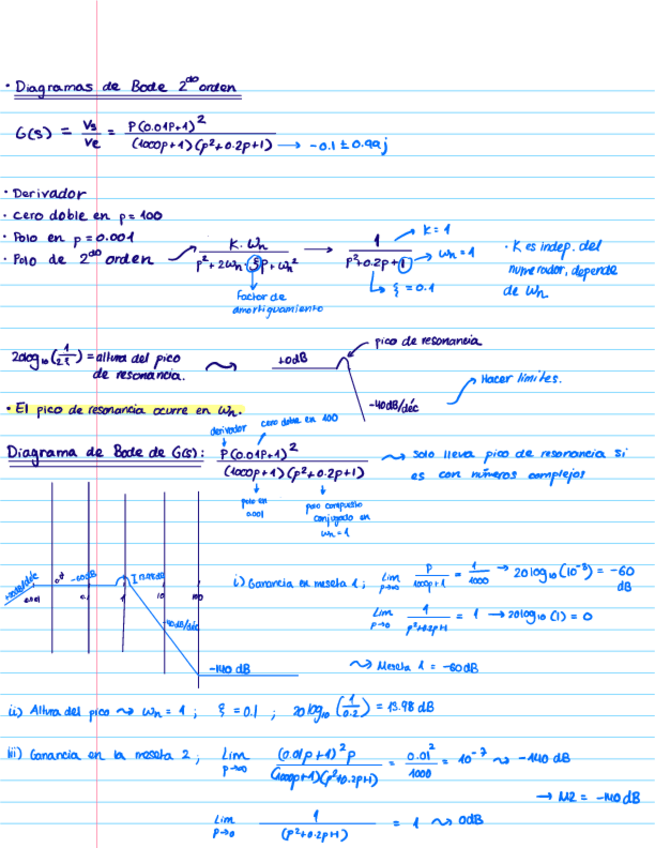 · Diagramas de Bode 2do orden
G(s) = Vs/Ve = P(0.01P+1)^2 / (1000p+1)(p^2+0.2p+1) → -0.1 ± 0.99j
· Derivador
· Cero doble en p = 100
· Polo en p = 0.001
· Polo de 2do orden
K·ωn / p^2+2ωn·ξp+ωn^2 → 1 / p^2+0.2p+1
K=1
ωn=1
ξ = 0.1
Factor de
amortiguamiento
· K es indep. del
numerador, depende
de ωn.
20log10(1/2ξ) = altura del pico
de resonancia.
+0dB
pico de resonancia
-40dB/déc
Hacer límites.
· El pico de resonancia ocurre en ωn.
derivador
cero doble en 100
Diagrama de Bode de G(s): P(0.01P+1)^2 / (1000p+1)(p^2+0.2p+1)
solo lleva pico de resonancia si
es con números complejos
polo en
0.001
polo
conjugado en
ωn=1
-60dB
1
10
-40dB/déc
-140 dB
i) Ganancia en meseta 1; Lim p→∞ p/1000p+1 = 1/1000 → 20log10(10^-3) = -60
dB
Lim p→0 1/p^2+0.2p+1 = 1 → 20log10(1) = 0
Meseta 1 = -60dB
ii) Altura del pico ⇝ ωn = 1; ξ = 0.1; 20log10(1/0.2) = 13.98 dB
iii) Ganancia en la meseta 2; Lim p→∞ (0.01p+1)^2p / (1000p+1)(p^2+0.2p+1) = 0.01^2/1000 = 10^-7 ⇝ -140 dB
→ M2 = -140dB
Lim p→0 1/(p^2+0.2p+1) = 1 ⇝ 0dB